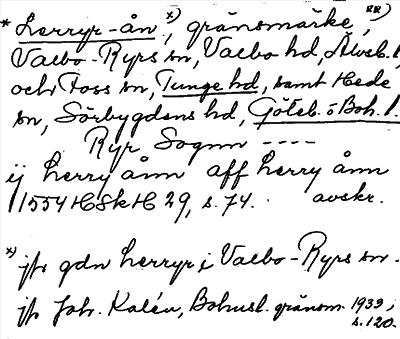 * Lerryr-ån *), gränsmärke, **)
Valbo-Ryrs sn, Valbo hd, Älvsb. l,
och Foss sn, Tunge hd, samt Hede
sn, Sörbygdens hd, Göteb. o Boh. l.
Ryr Sognn ----
ij herry ånn aff herry ånn
1554 HSkH 29, s. 74. avskr.
*) jfr gdn Lerryr i Valbo-Ryrs sn.
jfr Joh. Kalén, Bohusl. gränsm. 1933,
s. 120.